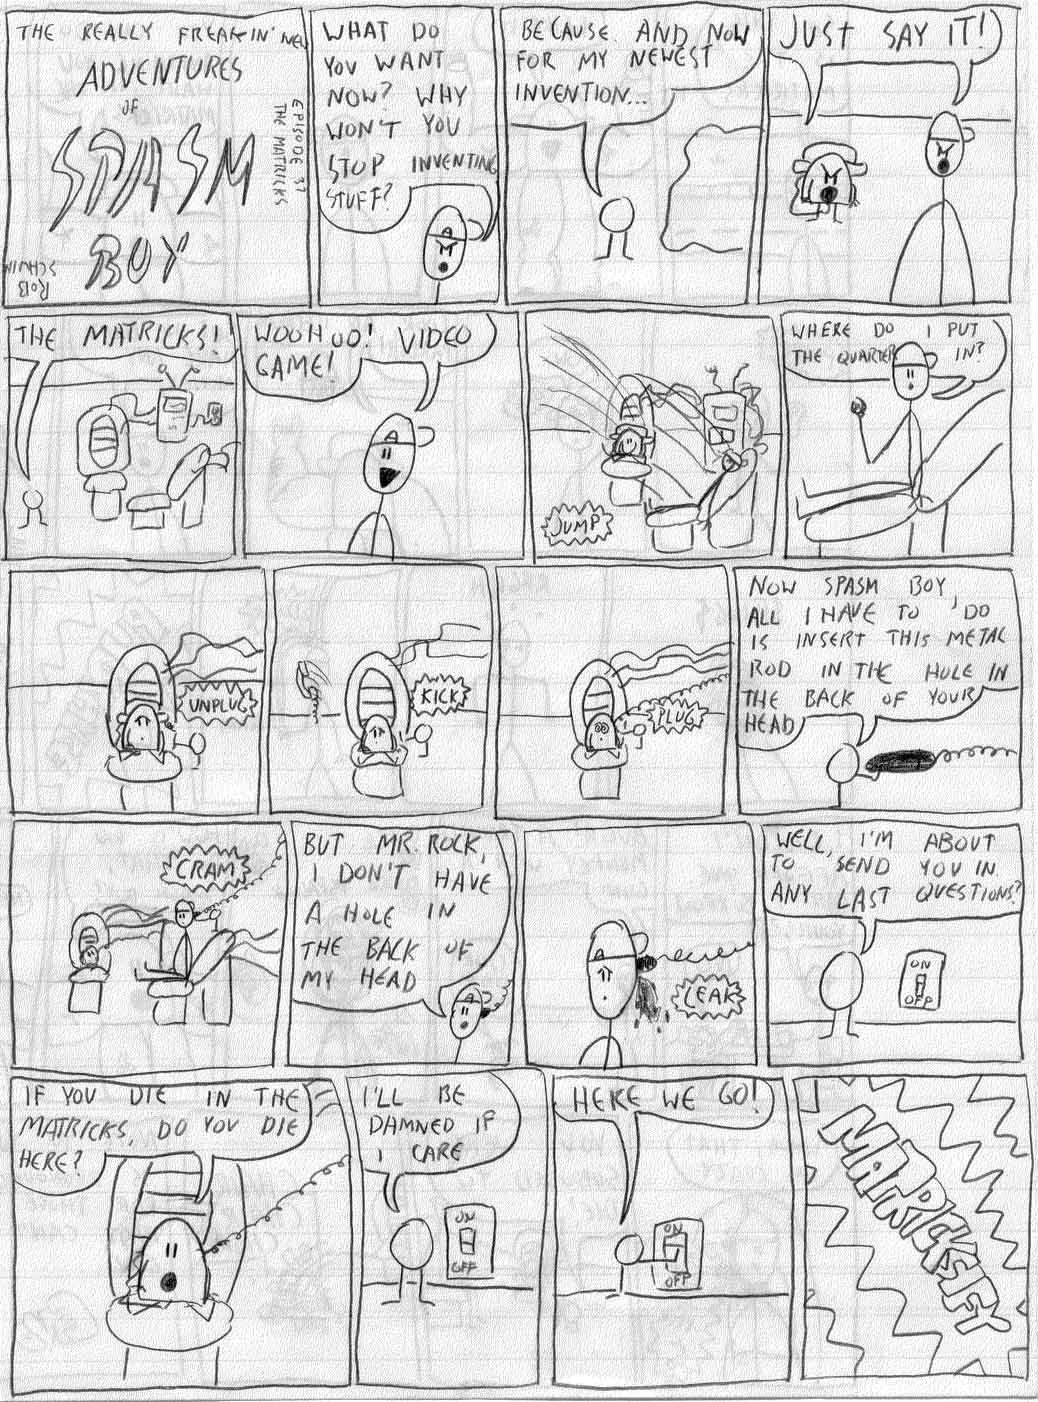 THE REALLY FREAKIN' NEW
ADVENTURES
OF
SPASM
BOY
EPISODE 37
THE MATRICKS
ROB
SCHWIN
WHAT DO
YOU WANT
NOW? WHY
WON'T YOU
STOP INVENTING
STUFF?
BECAUSE AND NOW
FOR MY NEWEST
INVENTION...
JUST SAY IT!
THE MATRICKS!
WOOHOO! VIDEO
GAME!
JUMP
WHERE DO I PUT
THE QUARTER IN?
UNPLUG
KICK
PLUG
NOW SPASM BOY,
ALL I HAVE TO DO
IS INSERT THIS METAL
ROD IN THE HOLE IN
THE BACK OF YOUR
HEAD
CRAM
BUT MR. ROCK,
I DON'T HAVE
A HOLE IN
THE BACK OF
MY HEAD
LEAK
WELL, I'M ABOUT
TO SEND YOU IN
ANY LAST QUESTIONS?
ON
OFF
IF YOU DIE IN THE
MATRICKS, DO YOU DIE
HERE?
I'LL BE
DAMNED IF
I CARE
ON
OFF
HERE WE GO!
ON
OFF
MATRICKSIFY